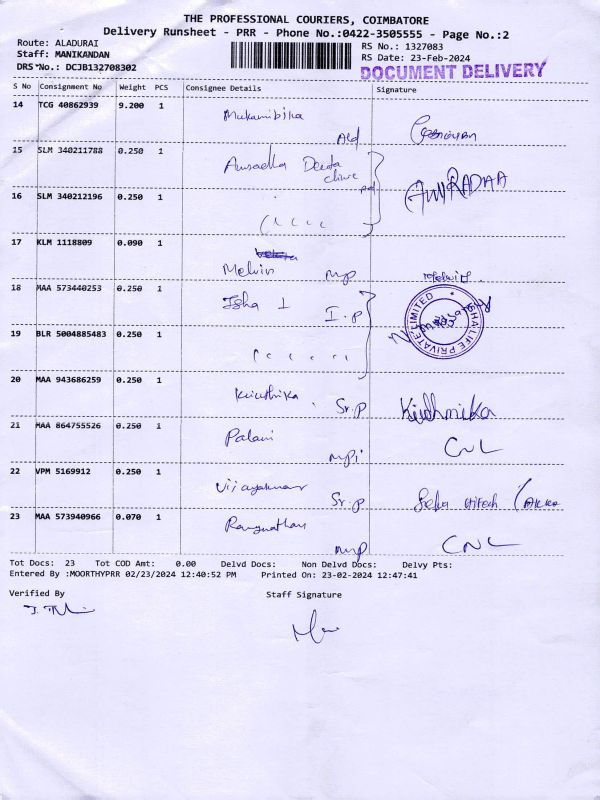 THE PROFESSIONAL COURIERS, COIMBATORE
Delivery Runsheet - PRR - Phone No.:0422-3505555 - Page No.:2
Route: ALADURAI
RS No.: 1327083
Staff: MANIKANDAN
RS Date: 23-Feb-2024
DRS No.: DCJB132708302
DOCUMENT DELIVERY
S No Consignment No Weight PCS Consignee Details Signature
14 TCG 40862939 9.200 1 Mukambika
Ald
15 SLM 340211788 0.250 1
ANURADHA
16 SLM 340212196 0.250 1
17 KLM 1118809 0.090 1
Melvin mp
18 MAA 573440253 0.250 1 Isha 1
I.p
ISHA LIFE PRIVATE LIMITED
19 BLR 5004885483 0.250 1
20 MAA 943686259 0.250 1
Sr.p
21 MAA 864755526 0.250 1 Palani
CNL
22 VPM 5169912 0.250 1 Vijayakumar
Sr.p
23 MAA 573940966 0.070 1
mp CNL
Tot Docs: 23 Tot COD Amt: 0.00 Delvd Docs: Non Delvd Docs: Delvy Pts:
Entered By :MOORTHYPRR 02/23/2024 12:40:52 PM Printed On: 23-02-2024 12:47:41
Verified By Staff Signature